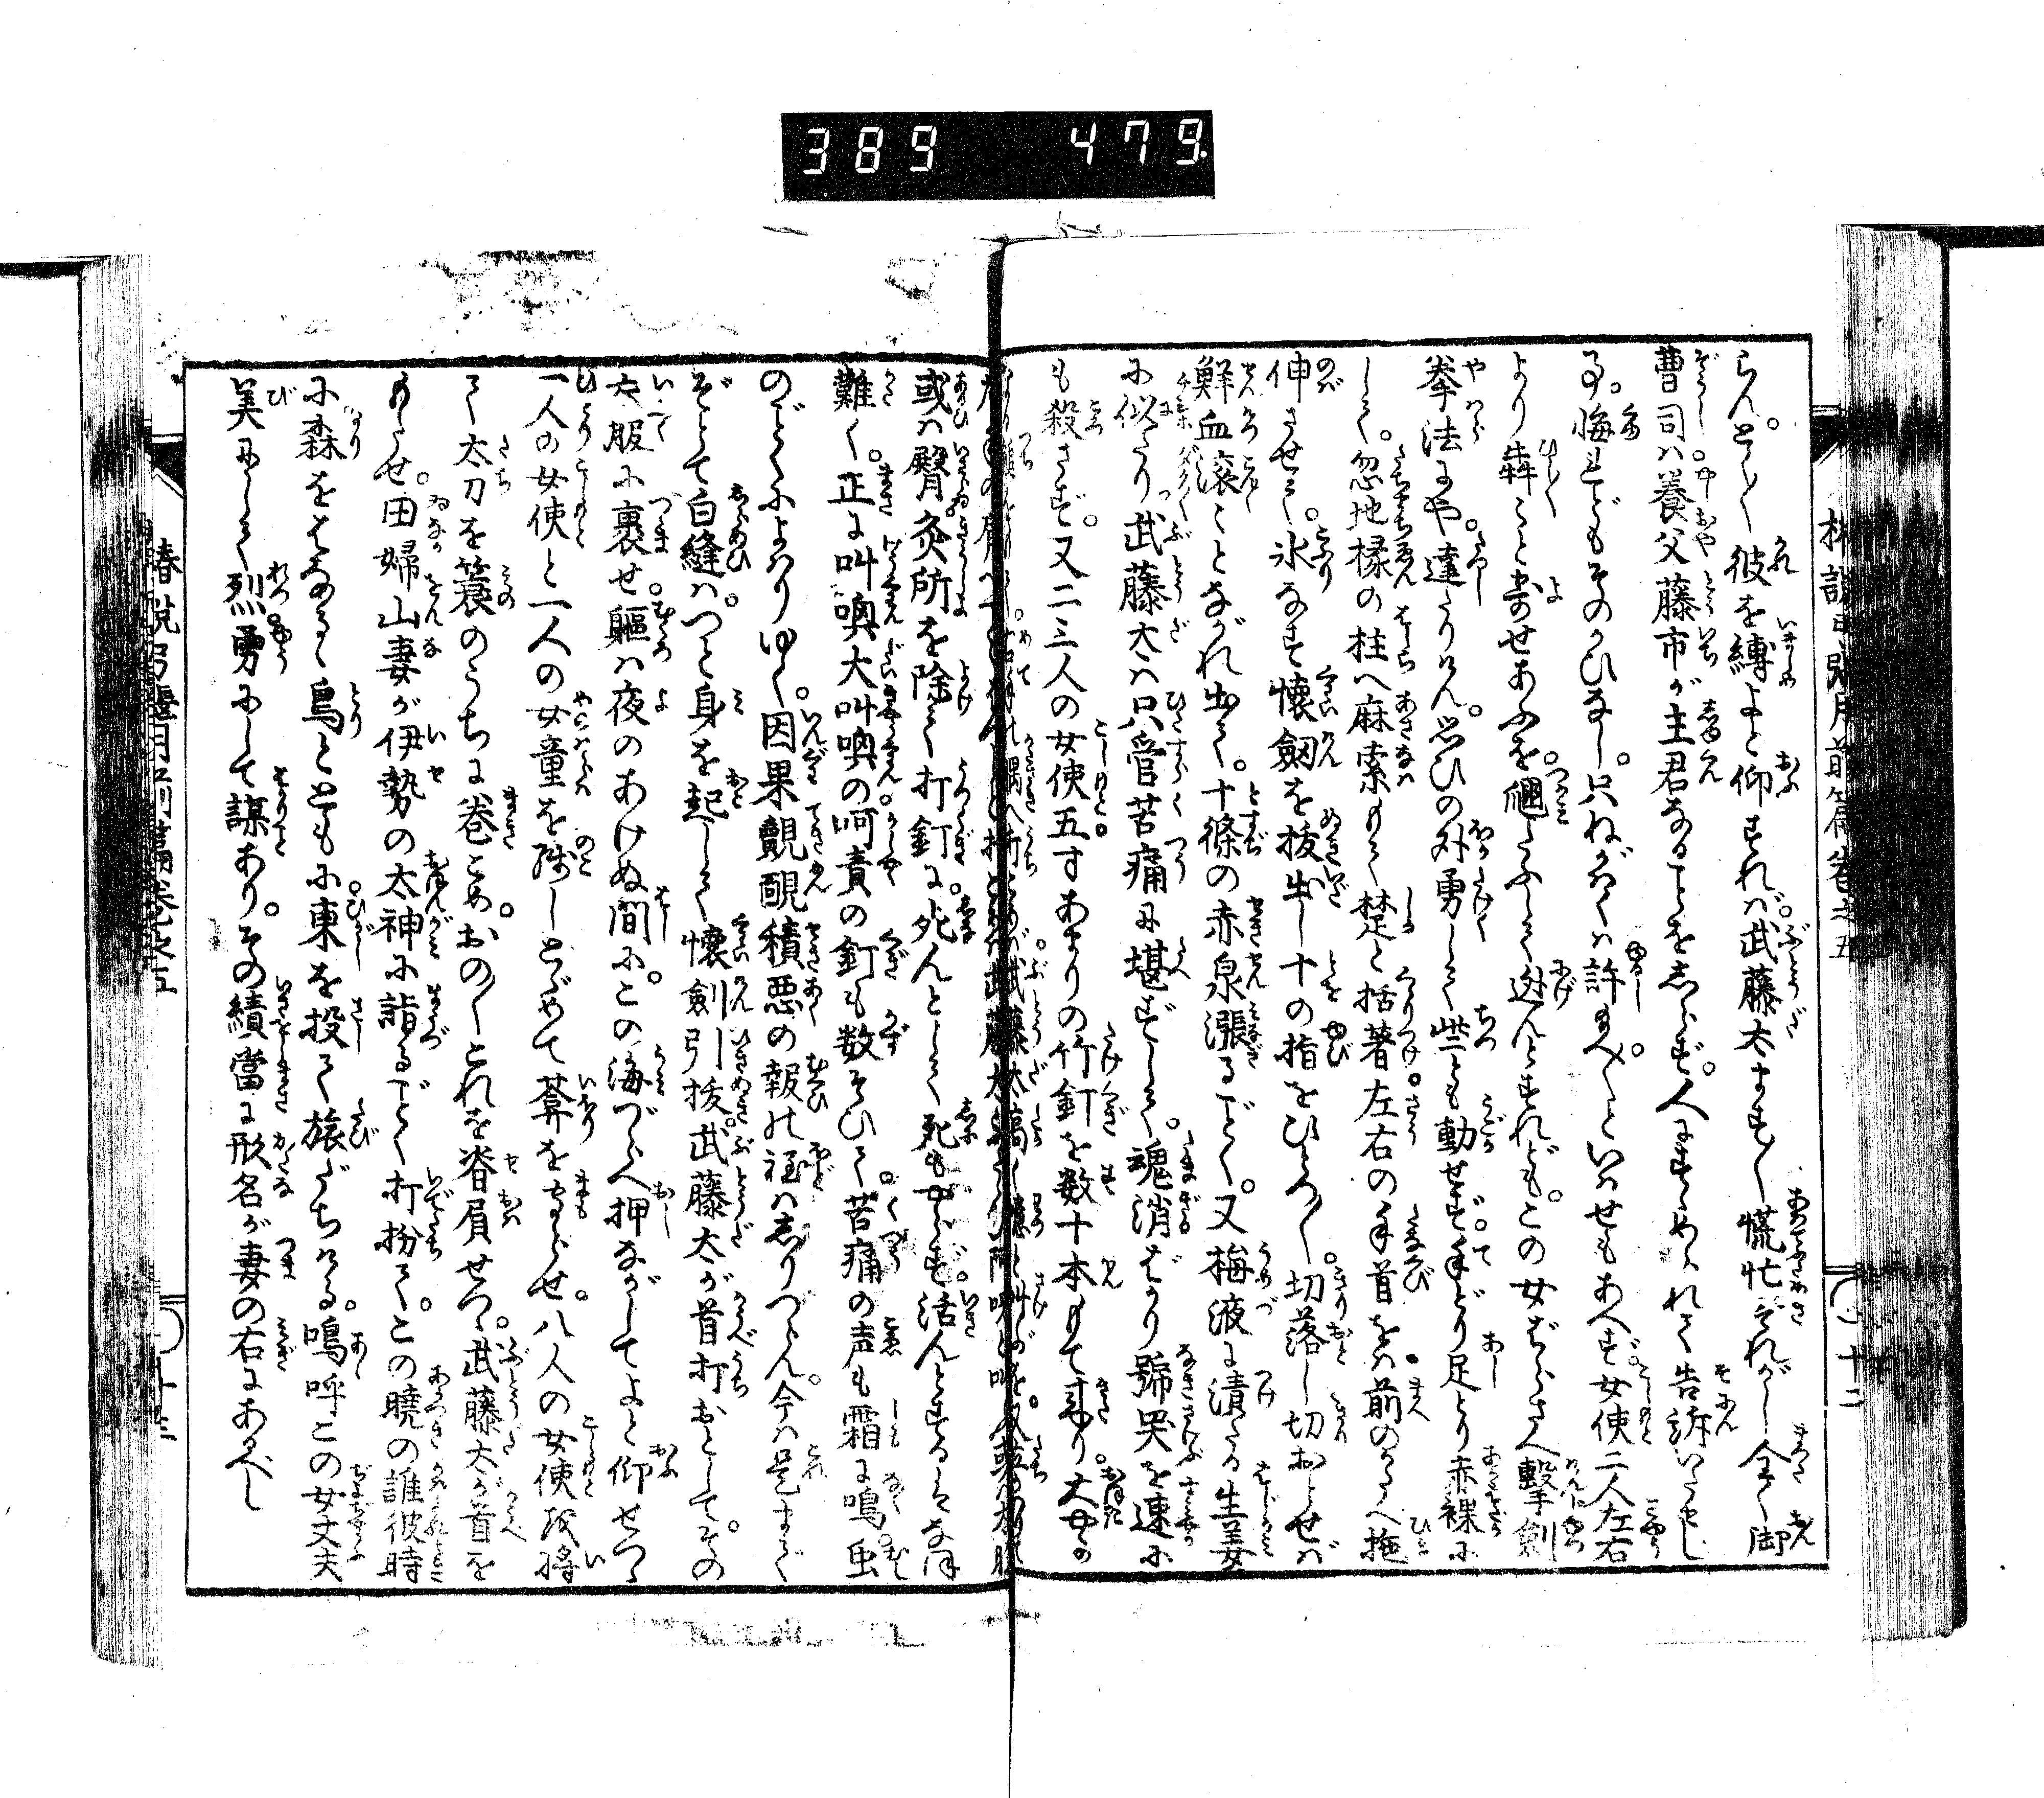 389 479
らん。とく〳〵彼を縛よと仰すれば。武藤太ますます慌忙それがし全く御
曹司は。養父藤市が主君なることをしらず。人にすゝめられて告訴いたせし
事。悔れどもそのかひなし。只ねがはくは許し給へといはせもあへず。女使二人左右
より犇々と寄せあふを。掴たふして迯んとすれども。この女ばらさへ撃剣
拳法にや。達したりけん。思ひの外勇しくて些とも動せず。手どり足とり赤裸に
して。忽地椽の柱へ麻索もて楚と括著。左右の手首をば。前のかたへ拖
伸させて。氷なす懐劔を抜出し十の指をひとつ〳〵。切落し切おとせば
鮮血滚々ことながれ出て。十條の赤泉漲るごとく。又梅液に漬たる生姜
に似たり。武藤太は只管苦痛に堪ずして。魂消ばかり號哭を速に
も殺さず。又二三人の女使。五寸あまりの竹釘を数十本もて来り。大
或は臀。灸所を除て打釘に。死んとして死もやらず。活んとするもなほ
難く。正に叫喚大叫喚の呵責の釘も数そひて。苦痛の声も霜に鳴。虫
のごとくによはりゆく。因果覿面積悪の報の程はしりつらん。今は是まで
ぞとて白縫は。つと身を起して懐劍引抜。武藤太が首打おとして。その
衣服に裹せ。軀は夜のあけぬ間に。この海づらへ押ながしてよと仰せつゝ
一人の女使と一人の女童を残しとゞめて菴を守らせ。八人の女使を将
て太刀を簑のうちに巻こめ。おの〳〵これを脊屓せつ。武藤太が首を
もたせ。田婦山妻が伊勢の太神に詣るごとく打扮て。この曉の誰彼時
に森をはなるゝ鳥とともに東を投て旅だちける。嗚呼この女丈夫
美にして烈。勇にして謀あり。その績當に形名が妻の右にあるべし
椿説弓張月前篇巻之五
十二
椿説弓張月前篇巻之五
十三